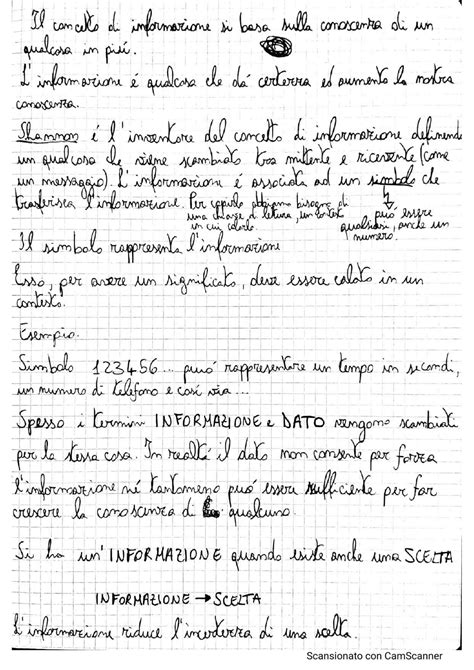 Il concetto di informazione si basa sulla conoscenza di un
qualcosa in più.
L'informazione è qualcosa che dà certezza ed aumento la nostra
conoscenza.
Shannon è l'inventore del concetto di informazione definendo
un qualcosa che viene scambiato tra mittente e ricevente (come
un messaggio). L'informazione è associata ad un simbolo che
trasferisce l'informazione. Per capirlo abbiamo bisogno di
una chiave di lettura, un contesto
in cui calarlo.
può essere
qualsiasi, anche un
numero.
Il simbolo rappresenta l'informazione
Esso, per avere un significato, deve essere calato in un
contesto.
Esempio.
Simbolo 123456... può rappresentare un tempo in secondi,
un numero di telefono e così via...
Spesso i termini INFORMAZIONE e DATO vengono scambiati
per la stessa cosa. In realtà il dato non consente per forza
l'informazione né tantomeno può essere sufficiente per far
crescere la conoscenza di qualcuno.
Si ha un'INFORMAZIONE quando esiste anche una SCELTA
INFORMAZIONE → SCELTA
L'informazione riduce l'incertezza di una scelta.
Scansionato con CamScanner